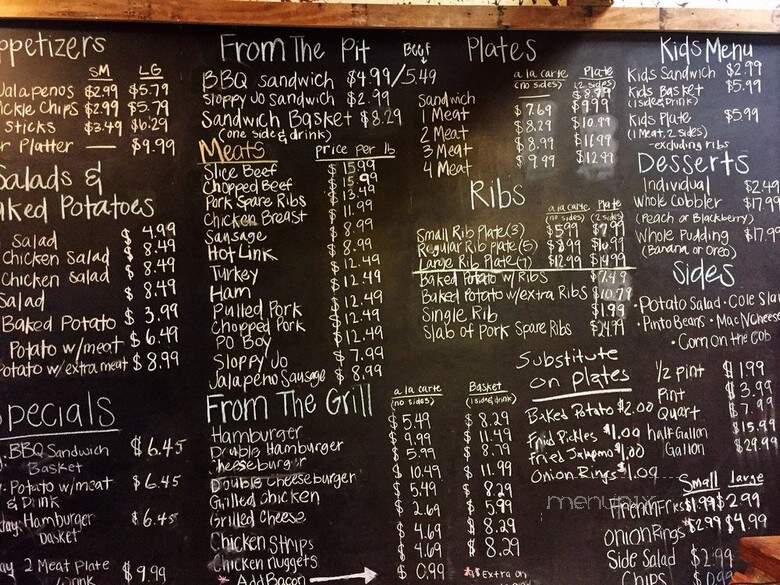 ppetizers
SM LG
Jalapenos $2.99 $5.79
ickle Chips $2.99 $5.79
Sticks $3.49 $6.29
r Platter — $9.99
Salads &
aked Potatoes
Salad $ 4.99
Chicken Salad $ 8.49
Chicken Salad $ 8.49
Salad $ 8.49
Baked Potato $ 3.99
Potato w/meat $ 6.49
otato w/extra meat $ 8.99
pecials
BBQ Sandwich $6.45
Basket
Potato w/meat $6.45
& Drink
Hamburger $6.45
Basket
2 Meat Plate $9.99
From The Pit Beef
BBQ Sandwich $4.99/5.49
Sloppy Jo Sandwich $2.99
Sandwich Basket $8.29
(one side & drink)
Meats price per lb
Slice Beef $15.99
Chopped Beef $15.99
Pork Spare Ribs $13.49
Chicken Breast $11.99
Sausage $8.99
Hot Link $8.99
Turkey $12.49
Ham $12.49
Pulled Pork $12.49
Chopped Pork $12.49
Po Boy $12.49
Sloppy Jo $7.99
Jalapeno Sausage $8.99
From The Grill a la carte (no sides) Basket (1 side & drink)
Hamburger $5.49 $8.29
Double Hamburger $9.99 $11.49
Cheeseburger $5.99 $8.79
Double Cheeseburger $10.49 $11.99
Grilled Chicken $5.49 $8.29
Grilled Cheese $2.69 $5.99
Chicken Strips $4.69 $8.29
Chicken nuggets $4.69 $8.29
* Add Bacon $0.99 *$ Extra on
Plates
a la carte (no sides) Plate (2 sides)
Sandwich $8.99
1 Meat $7.69 $9.99
2 Meat $8.29 $10.99
3 Meat $8.99 $11.99
4 Meat $9.99 $12.99
Ribs
a la carte (no sides) Plate (2 sides)
Small Rib Plate (3) $5.99
Regular Rib Plate (5)
Large Rib Plate (7) $12.99 $14.99
Baked Potato w/Ribs $7.49
Baked Potato w/extra Ribs $10.79
Single Rib $1.99
Slab of Pork Spare Ribs $24.99
Substitute
on plates
Baked Potato $2.00
Fried Pickles $1.00
Fried Jalapeno $1.00
Onion Rings $1.00
menupix
Kids Menu
Kids Sandwich $2.99
Kids Basket $5.99
(1 side & Drink)
Kids Plate $5.99
(1 Meat, 2 sides)
-excluding ribs
Desserts
Individual $2.49
Whole Cobbler $17.99
(Peach or Blackberry)
Whole Pudding $17.99
(Banana or Oreo)
Sides
• Potato Salad • Cole Sla
• Pinto Beans • Mac N Cheese
• Corn on the Cob
1/2 pint $1.99
Pint $3.99
Quart $7.99
half Gallon $15.99
Gallon $29.99
Small Large
French Fries $1.99 $2.99
Onion Rings $2.99 $4.99
Side Salad $2.99
Chips